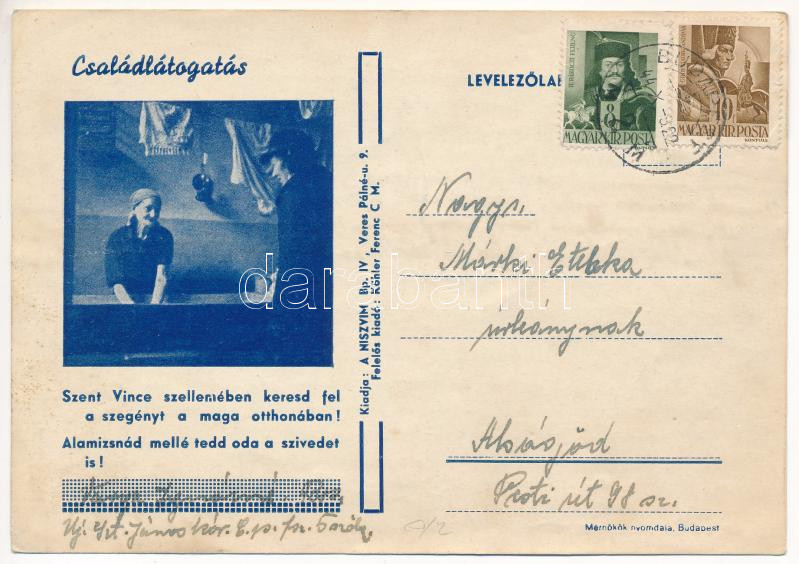 Családlátogatás
Szent Vince szellemében keresd fel
a szegényt a maga otthonában!
Alamizsnád mellé tedd oda a szivedet
is!
Uj. Szt. János kór.
Kiadja: A NISZVIM Bp. IV, Veres Pálné-u. 9.
Felelős kiadó: Köhler Ferenc C. M.
LEVELEZŐLAP
II. RÁKÓCZI FERENC
8
MAGYAR KIR. POSTA
10
MAGYAR KIR. POSTA
Nagys.
Márki Etelka
úrleánynak
Alsógöd
Pesti út 98 sz.
Mérnökök nyomdája, Budapest
darabanth